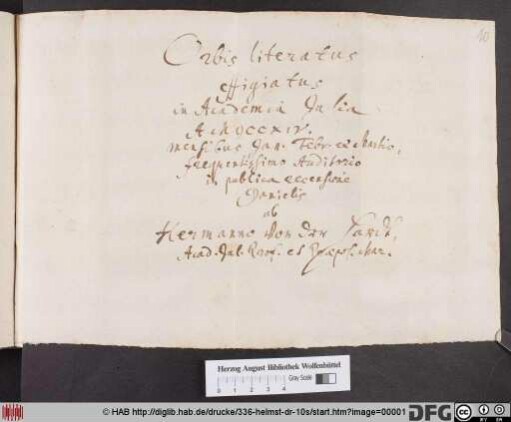 10
Orbis literatus
effigiatus
in Academia Julia
A. MDCCXIV.
mensibus Jan. Febr. et Martio,
frequentissimo Auditorio
in publica recensione
Danielis
ab
Hermanno von der Hardt,
Acad. Jul. Prof. et Præpos. Mar.
Herzog August Bibliothek Wolfenbüttel
0 1 2 3 4 Gray Scale
© HAB http://diglib.hab.de/drucke/336-helmst-dr-10s/start.htm?image=00001
DFG
cc
BY SA